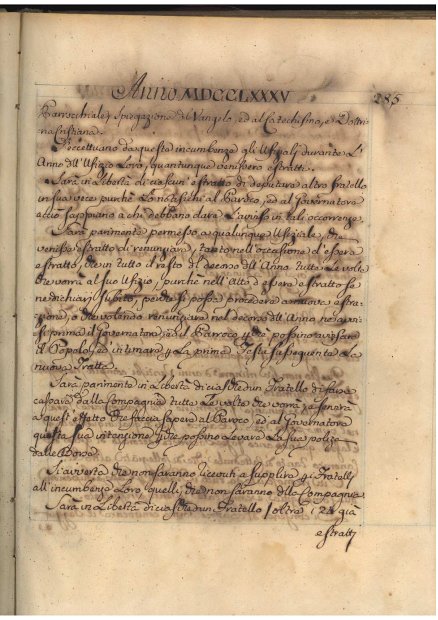 Anno MDCCLXXXV 285
Parrochiale, Spiegazione di Vangelo, ed al Catechismo, e Dottri
na Cristiana.
Si eccettuano da questa incumbenza gli Ufiziali durante L'
Anno dell'Ufizio Loro, quantunque venissero estratti.
Sarà in libertà di ciascun' estratto di deputare altro fratello
in sua vece purchè Lo notifichi al Parroco, ed al Governatore
acciò sappiano a chi debbano dare L'avviso in tali occorrenze.
Sarà parimente permesso a qualunque Ufiziale, che
venisse estratto di renunziare, tanto nell'occasione d'essere
estratto, che in tutto il resto di decorso dell'Anno tutte Le volte
che vorrà al suo Ufizio, purchè nell'Atto d'essere estratto se
ne dichiari subito, perchè si possa procedere a nuova estra
zione, o che volendo renunziare nel decorso dell'Anno ne avvi
si prima il Governatore, ed il Parroco, che possino avvisare
il Popolo, ed intimare la prima Festa susseguente la
nuova Tratta.
Sarà parimente in Libertà di ciascun Fratello di farsi
cassare dalla Compagnia tutte Le volte che vorrà,
a quest'effetto che faccia sapere al Parroco, ed al Governatore
questa sua intenzione, che possino Levare La sua poliza
dalle Borse.
Si avverta che non saranno ricevuti a supplire gi Fratelli
all'incumbenze Loro, quelli, che non saranno della Compagnia
Sarà in Libertà di ciascun Fratello, oltre i 24 già
estratti